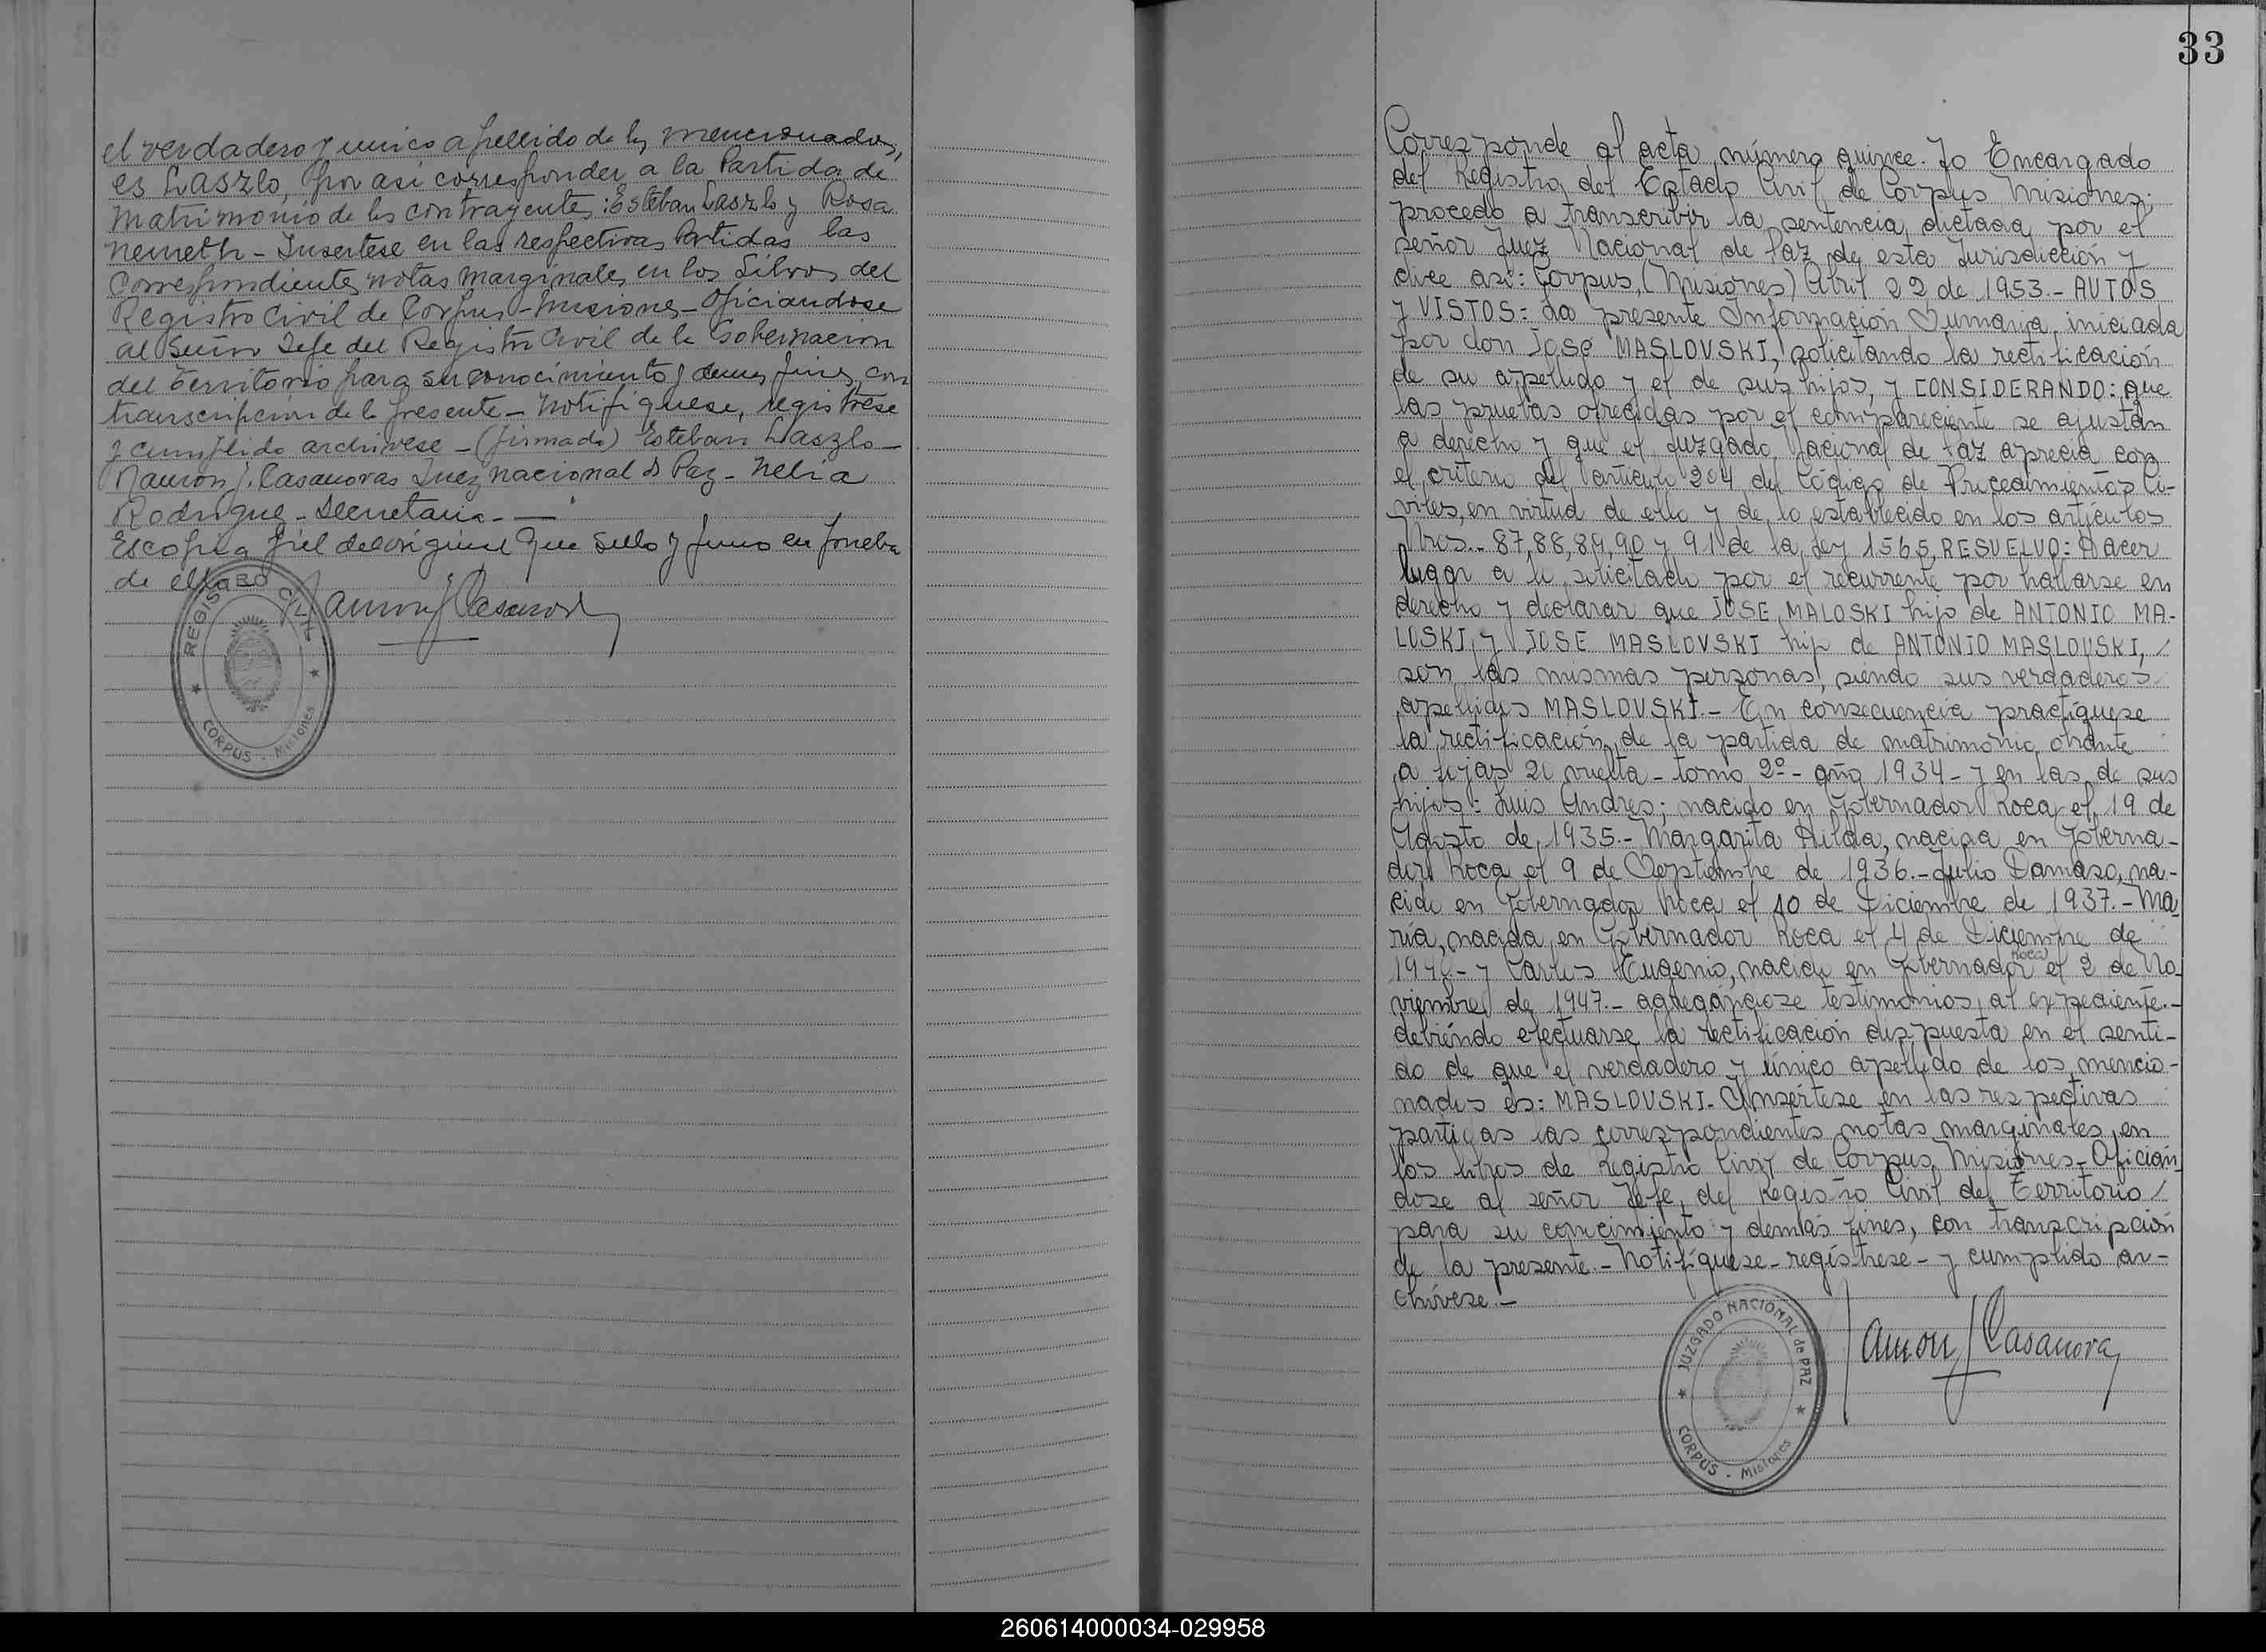 el verdadero y unico apellido de los mencionados,
es Laszlo, por asi corresponder a la Partida de
matrimonio de los contrayentes: Esteban Laszlo y Rosa
Nemeth - Insertese en las respectivas Partidas las
Correspondientes notas marginales en los Libros del
Registro Civil de Corpus - Misiones - Oficiandose
al Señor Jefe del Registro Civil de la Gobernacion
del territorio para su conocimiento y demas fines, con
transcripcion de la presente - Notifiquese, registrese
y cumplido archivese - (firmado) Esteban Laszlo -
Ramon J. Casanovas Juez nacional de Paz - Nelia
Rodrigue - Secretaria -
Es copia fiel del original que sello y firmo en prueba
de ello
Ramon J Casanova
REGISTRO CIVIL
CORPUS - Misiones
33
Corresponde al acta número quince. Yo Encargado
del Registro del Estado Civil de Corpus Misiones;
procedo a transcribir la sentencia dictada por el
señor Juez Nacional de Paz de esta Jurisdicción y
dice así: Corpus, (Misiones) Abril 22 de 1953.- AUTOS
y VISTOS: La presente Información Sumaria, iniciada
por don José MASLOVSKI, solicitando la rectificación
de su apellido y el de sus hijos, y CONSIDERANDO: que
las pruebas ofrecidas por el compareciente se ajustan
a derecho y que el Juzgado Nacional de Paz aprecia con
el criterio del artículo 204 del Código de Procedimientos Ci-
viles, en virtud de ello y de lo establecido en los artículos
Nros.. 87,88,89,90 y 91 de la Ley 1565, RESUELVO: Hacer
lugar a lo solicitado por el recurrente por hallarse en
derecho y declarar que JOSE MALOSKI hijo de ANTONIO MA-
LOSKI, y JOSE MASLOVSKI hijo de ANTONIO MASLOVSKI, /
son las mismas personas, siendo sus verdaderos
apellidos MASLOVSKI.- En consecuencia practíquese
la rectificación de la partida de matrimonio obrante
a fojas 20 vuelta - tomo 2º - año 1934 - y en las de sus
hijos: Luis Andres; nacido en Gobernador Roca el 19 de
Agosto de 1935.- Margarita Hilda, nacida en Goberna-
dor Roca el 9 de Septiembre de 1936.- Julio Damaso, na-
cido en Gobernador Roca el 10 de Diciembre de 1937.- Ma-
ría, nacida en Gobernador Roca el 4 de Diciembre de
- y Carlos Eugenio, nacido en Gobernador Roca el 2 de No-
viembre de 1947.- agregándose testimonios al expediente.-
debiéndo efectuarse la rectificación dispuesta en el senti-
do de que el verdadero y único apellido de los mencio-
nados es: MASLOVSKI. Insértese en las respectivas
partidas las correspondientes notas marginales en
los libros de Registro Civil de Corpus, Misiones - Oficián
dose al señor Jefe del Registro Civil del Territorio /
para su conocimiento y demás fines, con transcripción
de la presente - Notifíquese - regístrese - y cumplido ar-
chívese. -
Ramon J Casanova
JUZGADO NACIONAL de PAZ
CORPUS - Misiones
260614000034-029958